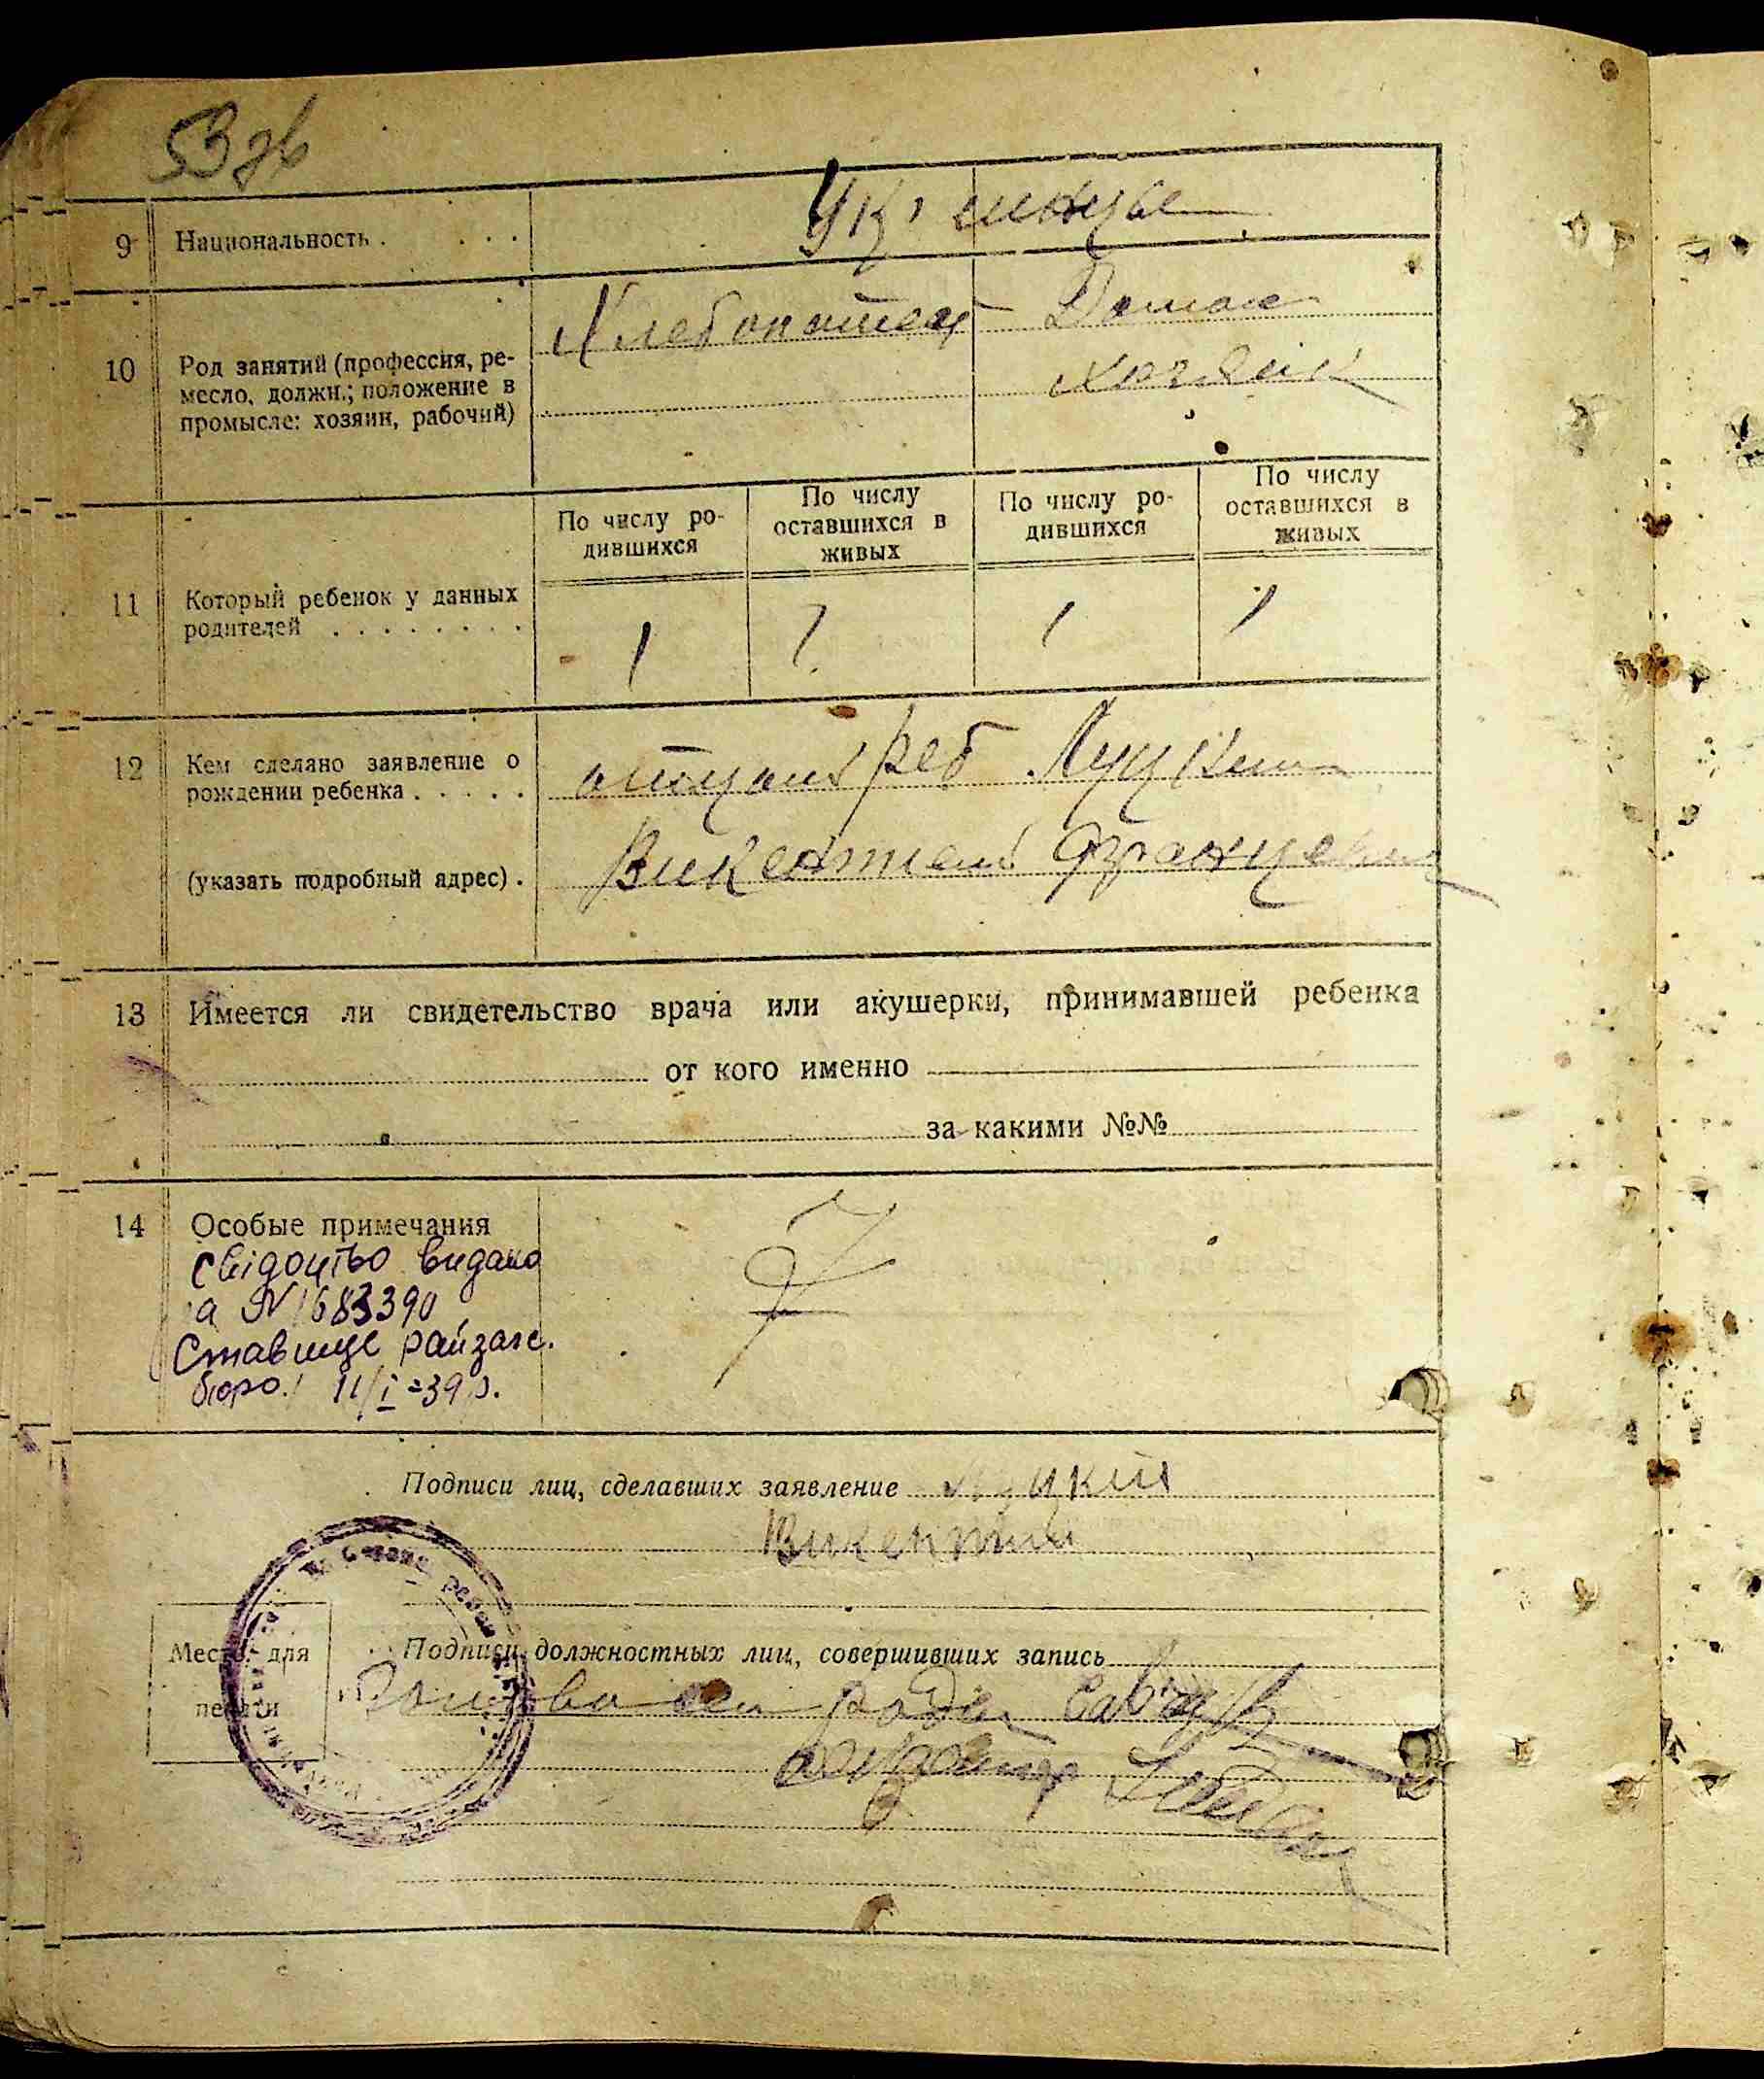 53 зв
9 Национальность . . . .
Укр
10 Род занятий (профессия, ре-
месло, должн.; положение в
промысле: хозяин, рабочий)
Хлебопашец
Домаш
хозяйк
По числу ро-
дившихся
По числу
оставшихся в
живых
По числу ро-
дившихся
По числу
оставшихся в
живых
11 Который ребенок у данных
родителей . . . . . . . .
1 1 1 1
12 Кем сделано заявление о
рождении ребенка . . . . .
(указать подробный адрес) .
отцом реб Луцким
Викентием Францевич
13 Имеется ли свидетельство врача или акушерки, принимавшей ребенка
от кого именно
за какими №№
14 Особые примечания
свідоцтво видано
а №1683390
Ставище райзагс.
бюро. 11/I-39 р.
Подписи лиц, сделавших заявление Луцкий
Викентий
Место для
печати
Подписи должностных лиц, совершивших запись
Голова сіл ради
секретар